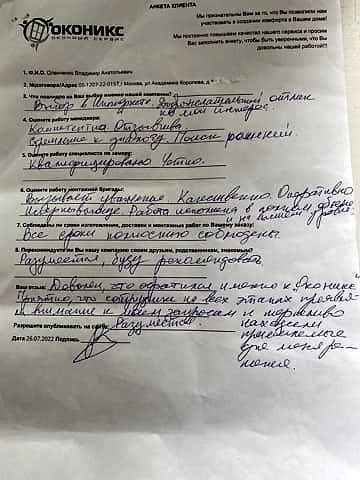 ОКОНИКС
ОКОННЫЙ СЕРВИС
АНКЕТА КЛИЕНТА
Мы признательны Вам за то, что Вы позволили нам
участвовать в создании комфорта в Вашем доме!
Мы постоянно повышаем качество нашего сервиса и просим
Вас заполнить анкету, чтобы быть уверенными, что Вы
довольны нашей работой!!!
1. Ф.И.О. Олейченко Владимир Анатольевич
2. №договора/Адрес 05-1207-22-015Т / Москва, ул Академика Королева, д
3. Что повлияло на Ваш выбор именно нашей компании?
Выбор в Интернете. Доброжелательный отклик
на мой интерес.
4. Оцените работу менеджера:
Компетентна. Отзывчива.
Стремление к диалогу. Поиск решений.
5. Оцените работу специалиста по замеру:
Квалифицировано. Четко.
6. Оцените работу монтажной бригады:
Вызывает уважение. Качественно. Оперативно
Исчерпывающе. Работа исполнена в полном объеме
и на высоком уровне.
7. Соблюдены ли сроки изготовления, доставки и монтажных работ по Вашему заказу:
Все сроки полностью соблюдены.
8. Порекомендуете ли Вы нашу компанию своим друзьям, родственникам, знакомым?
Разумеется, буду рекомендовать
Ваш отзыв: Доволен, что обратился именно к Оконикс
Приятно, что сотрудники на всех этапах проявля-
ли внимание к моим запросам и терпеливо
находили
приемлемые
для меня ре-
шения.
Разрешите опубликовать на сайте: Разумеется.
Дата 26.07.2022 Подпись